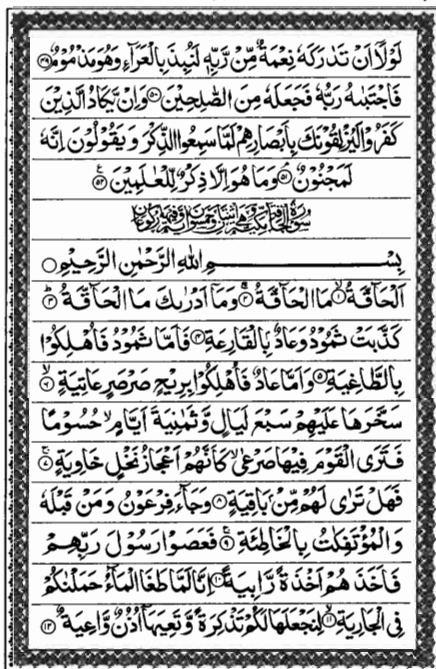 لَوْلَآ اَنْ تَدٰرَكَهٗ نِعْمَةٌ مِّنْ رَّبِّهٖ لَنُبِذَ بِالْعَرَآءِ وَهُوَ مَذْمُوْمٌ ﴿۴۹﴾
فَاجْتَبٰىهُ رَبُّهٗ فَجَعَلَهٗ مِنَ الصّٰلِحِيْنَ ﴿۵۰﴾ وَاِنْ يَّكَادُ الَّذِيْنَ
كَفَرُوْا لَيُزْلِقُوْنَكَ بِاَبْصَارِهِمْ لَمَّا سَمِعُوا الذِّكْرَ وَيَقُوْلُوْنَ اِنَّهٗ
لَمَجْنُوْنٌ ﴿۵۱﴾ وَمَا هُوَ اِلَّا ذِكْرٌ لِّلْعٰلَمِيْنَ ﴿۵۲﴾
سُوْرَةُ الْحَاقَّةِ مَكِّيَّةٌ
بِسْمِ اللّٰهِ الرَّحْمٰنِ الرَّحِيْمِ
اَلْحَآقَّةُ ﴿۱﴾ مَا الْحَآقَّةُ ﴿۲﴾ وَمَآ اَدْرٰىكَ مَا الْحَآقَّةُ ﴿۳﴾
كَذَّبَتْ ثَمُوْدُ وَعَادٌۢ بِالْقَارِعَةِ ﴿۴﴾ فَاَمَّا ثَمُوْدُ فَاُهْلِكُوْا
بِالطَّاغِيَةِ ﴿۵﴾ وَاَمَّا عَادٌ فَاُهْلِكُوْا بِرِيْحٍ صَرْصَرٍ عَاتِيَةٍ ﴿۶﴾
سَخَّرَهَا عَلَيْهِمْ سَبْعَ لَيَالٍ وَّثَمٰنِيَةَ اَيَّامٍ حُسُوْمًا
فَتَرَى الْقَوْمَ فِيْهَا صَرْعٰى كَاَنَّهُمْ اَعْجَازُ نَخْلٍ خَاوِيَةٍ ﴿۷﴾
فَهَلْ تَرٰى لَهُمْ مِّنْۢ بَاقِيَةٍ ﴿۸﴾ وَجَآءَ فِرْعَوْنُ وَمَنْ قَبْلَهٗ
وَالْمُؤْتَفِكٰتُ بِالْخَاطِئَةِ ﴿۹﴾ فَعَصَوْا رَسُوْلَ رَبِّهِمْ
فَاَخَذَهُمْ اَخْذَةً رَّابِيَةً ﴿۱۰﴾ اِنَّا لَمَّا طَغَا الْمَآءُ حَمَلْنٰكُمْ
فِى الْجَارِيَةِ ﴿۱۱﴾ لِنَجْعَلَهَا لَكُمْ تَذْكِرَةً وَّتَعِيَهَآ اُذُنٌ وَّاعِيَةٌ ﴿۱۲﴾